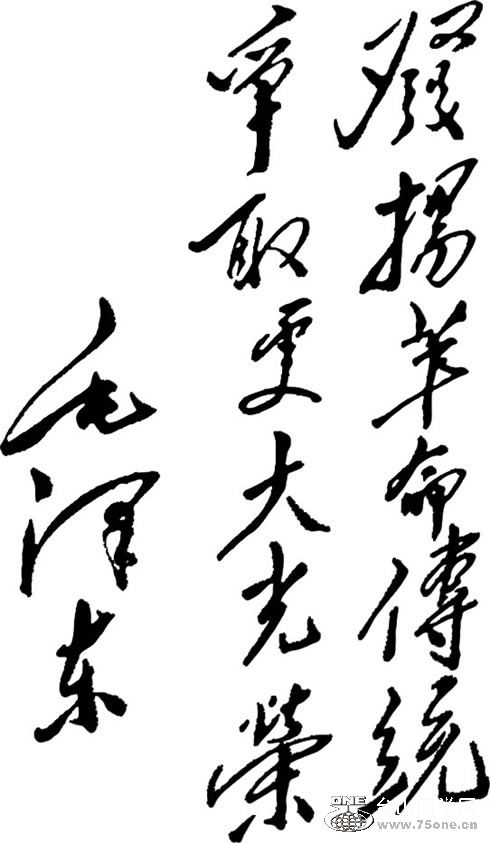 發揚革命傳統
爭取更大光榮
毛泽东
ONE
www.75one.cn